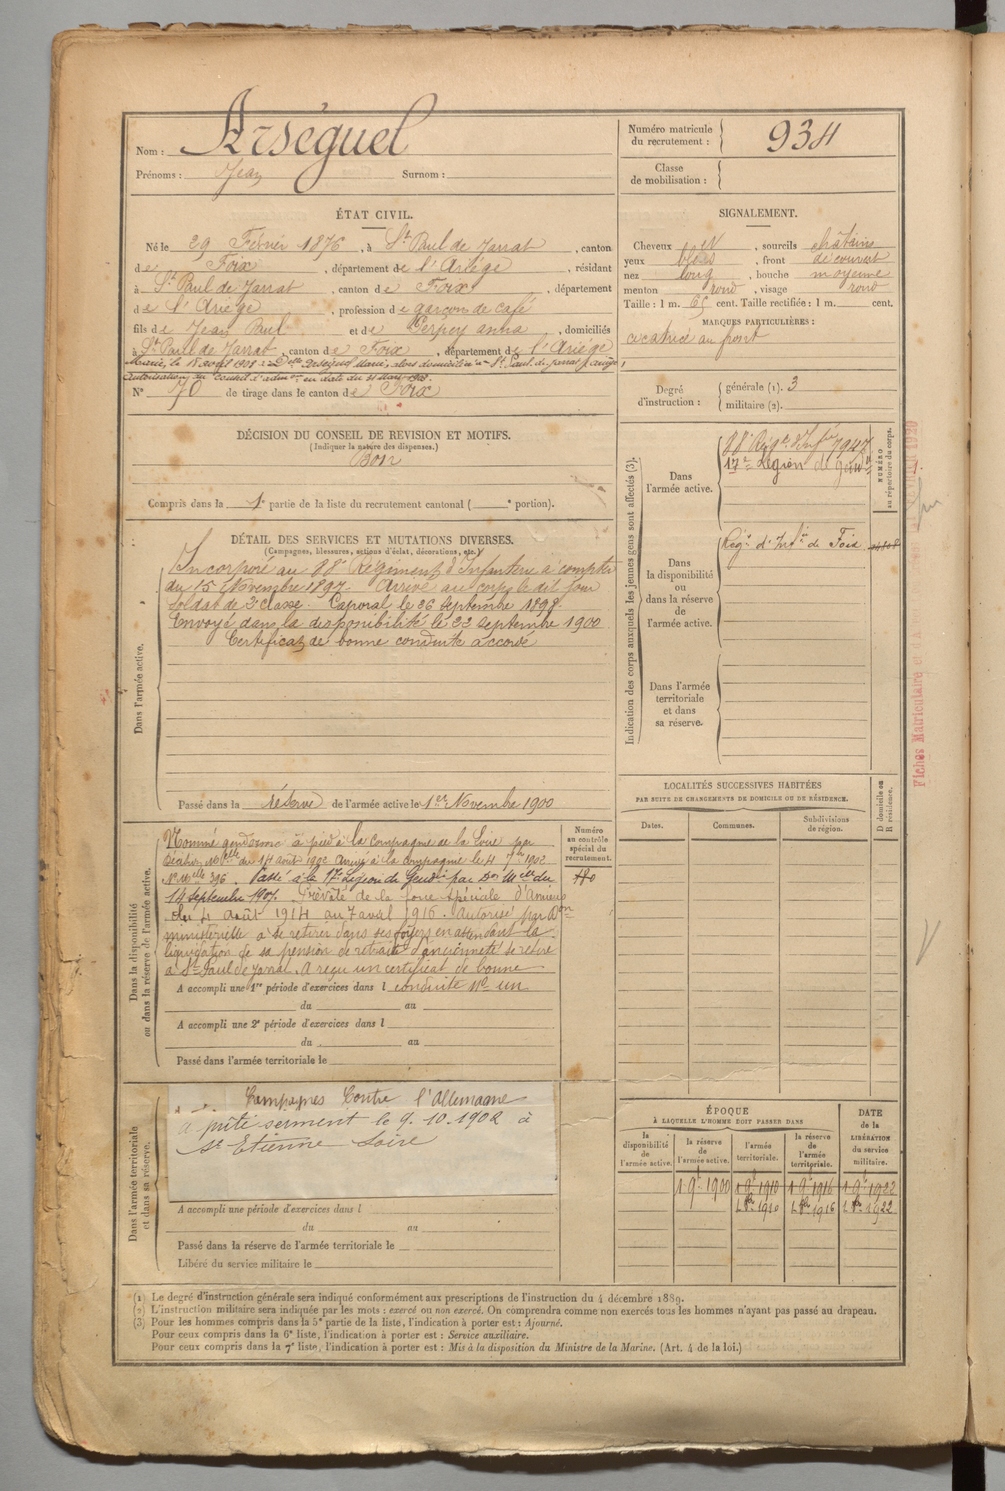 Nom : Arséguel
Prénoms : Jean Surnom :
Numéro matricule du recrutement : 934
Classe de mobilisation :
ÉTAT CIVIL.
Né le 29 Février 1876, à St Paul de Jarrat, canton
de Foix, département de l'Ariège, résidant
à St Paul de Jarrat, canton de Foix, département
de l'Ariège, profession de garçon de café
fils de Jean Paul et de anna, domiciliés
à St Paul de Jarrat, canton de Foix, département de l'Ariège
Marié, le 18 1908 à Delle Marie, domiciliée à St Paul de Jarrat
Autorisation du Conseil d'admon en date du 31 mars 1908.
N° 70 de tirage dans le canton de Foix
SIGNALEMENT.
Cheveux , sourcils châtains
yeux bleus, front découvert
nez long, bouche moyenne
menton rond, visage rond
Taille : 1 m. 65 cent. Taille rectifiée : 1 m. cent.
MARQUES PARTICULIÈRES :
cicatrice au front
Degré d'instruction : générale (1). 3
militaire (2).
DÉCISION DU CONSEIL DE REVISION ET MOTIFS.
(Indiquer la nature des dispenses.)
Bon
Compris dans la 1e partie de la liste du recrutement cantonal ( e portion).
DÉTAIL DES SERVICES ET MUTATIONS DIVERSES.
(Campagnes, blessures, actions d'éclat, décorations, etc.)
Dans l'armée active.
Incorporé au 88e Régiment d'Infanterie à compter
du 15 Novembre 1897. Arrivé au corps le dit jour
soldat de 2e classe. Caporal le 26 septembre 1898.
Envoyé dans la disponibilité le 22 septembre 1900
Certificat de bonne conduite accordé
Passé dans la réserve de l'armée active le 1er Novembre 1900
Indication des corps auxquels les jeunes gens sont affectés (3).
NUMÉRO au répertoire du corps.
Dans l'armée active.
88e Régt d'Infrie 7947
17e Légion de gendie
Dans la disponibilité ou dans la réserve de l'armée active.
Régt d'Infie de Foix
Dans l'armée territoriale et dans sa réserve.
Fiches Matriculaire et
LOCALITÉS SUCCESSIVES HABITÉES
PAR SUITE DE CHANGEMENTS DE DOMICILE OU DE RÉSIDENCE.
D domicile ou R résidence.
Dates. Communes. Subdivisions de région.
Dans la disponibilité ou dans la réserve de l'armée active.
Numéro au contrôle spécial du recrutement.
480
Nommé gendarme à pied à la Compagnie de la Loire par
décision Mlle du 14 août 1902 Arrivé à la compagnie le 4 7bre 1902
N° Mlle 296. Passé à la 17e Légion de Gendie par Don Mlle du
14 septembre 1907. Prévôté de la force spéciale d'Amiens
du 4 août 1914 au 7 avril 1916. autorisé par Don
ministérielle à se retirer dans ses foyers en attendant la
liquidation de sa pension de retraite d'ancienneté se retire
à St Paul de Jarrat. A reçu un certificat de bonne
A accompli une 1re période d'exercices dans l conduite No un
du au
A accompli une 2e période d'exercices dans l
du au
Passé dans l'armée territoriale le
Dans l'armée territoriale et dans sa réserve.
Campagnes Contre l'Allemagne
a prêté serment le 9.10.1902 à
St Etienne Loire
A accompli une période d'exercices dans l
du au
Passé dans la réserve de l'armée territoriale le
Libéré du service militaire le
ÉPOQUE
À LAQUELLE L'HOMME DOIT PASSER DANS
DATE de la LIBÉRATION du service militaire.
la disponibilité de l'armée active.
la réserve de l'armée active.
l'armée territoriale.
la réserve de l'armée territoriale.
1 9e 1900 1 9e 1910 1 9e 1916 1 9e 1922
1910 1916 1922
(1) Le degré d'instruction générale sera indiqué conformément aux prescriptions de l'instruction du 4 décembre 1889.
(2) L'instruction militaire sera indiquée par les mots : exercé ou non exercé. On comprendra comme non exercés tous les hommes n'ayant pas passé au drapeau.
(3) Pour les hommes compris dans la 5e partie de la liste, l'indication à porter est : Ajourné.
Pour ceux compris dans la 6e liste, l'indication à porter est : Service auxiliaire.
Pour ceux compris dans la 7e liste, l'indication à porter est : Mis à la disposition du Ministre de la Marine. (Art. 4 de la loi.)